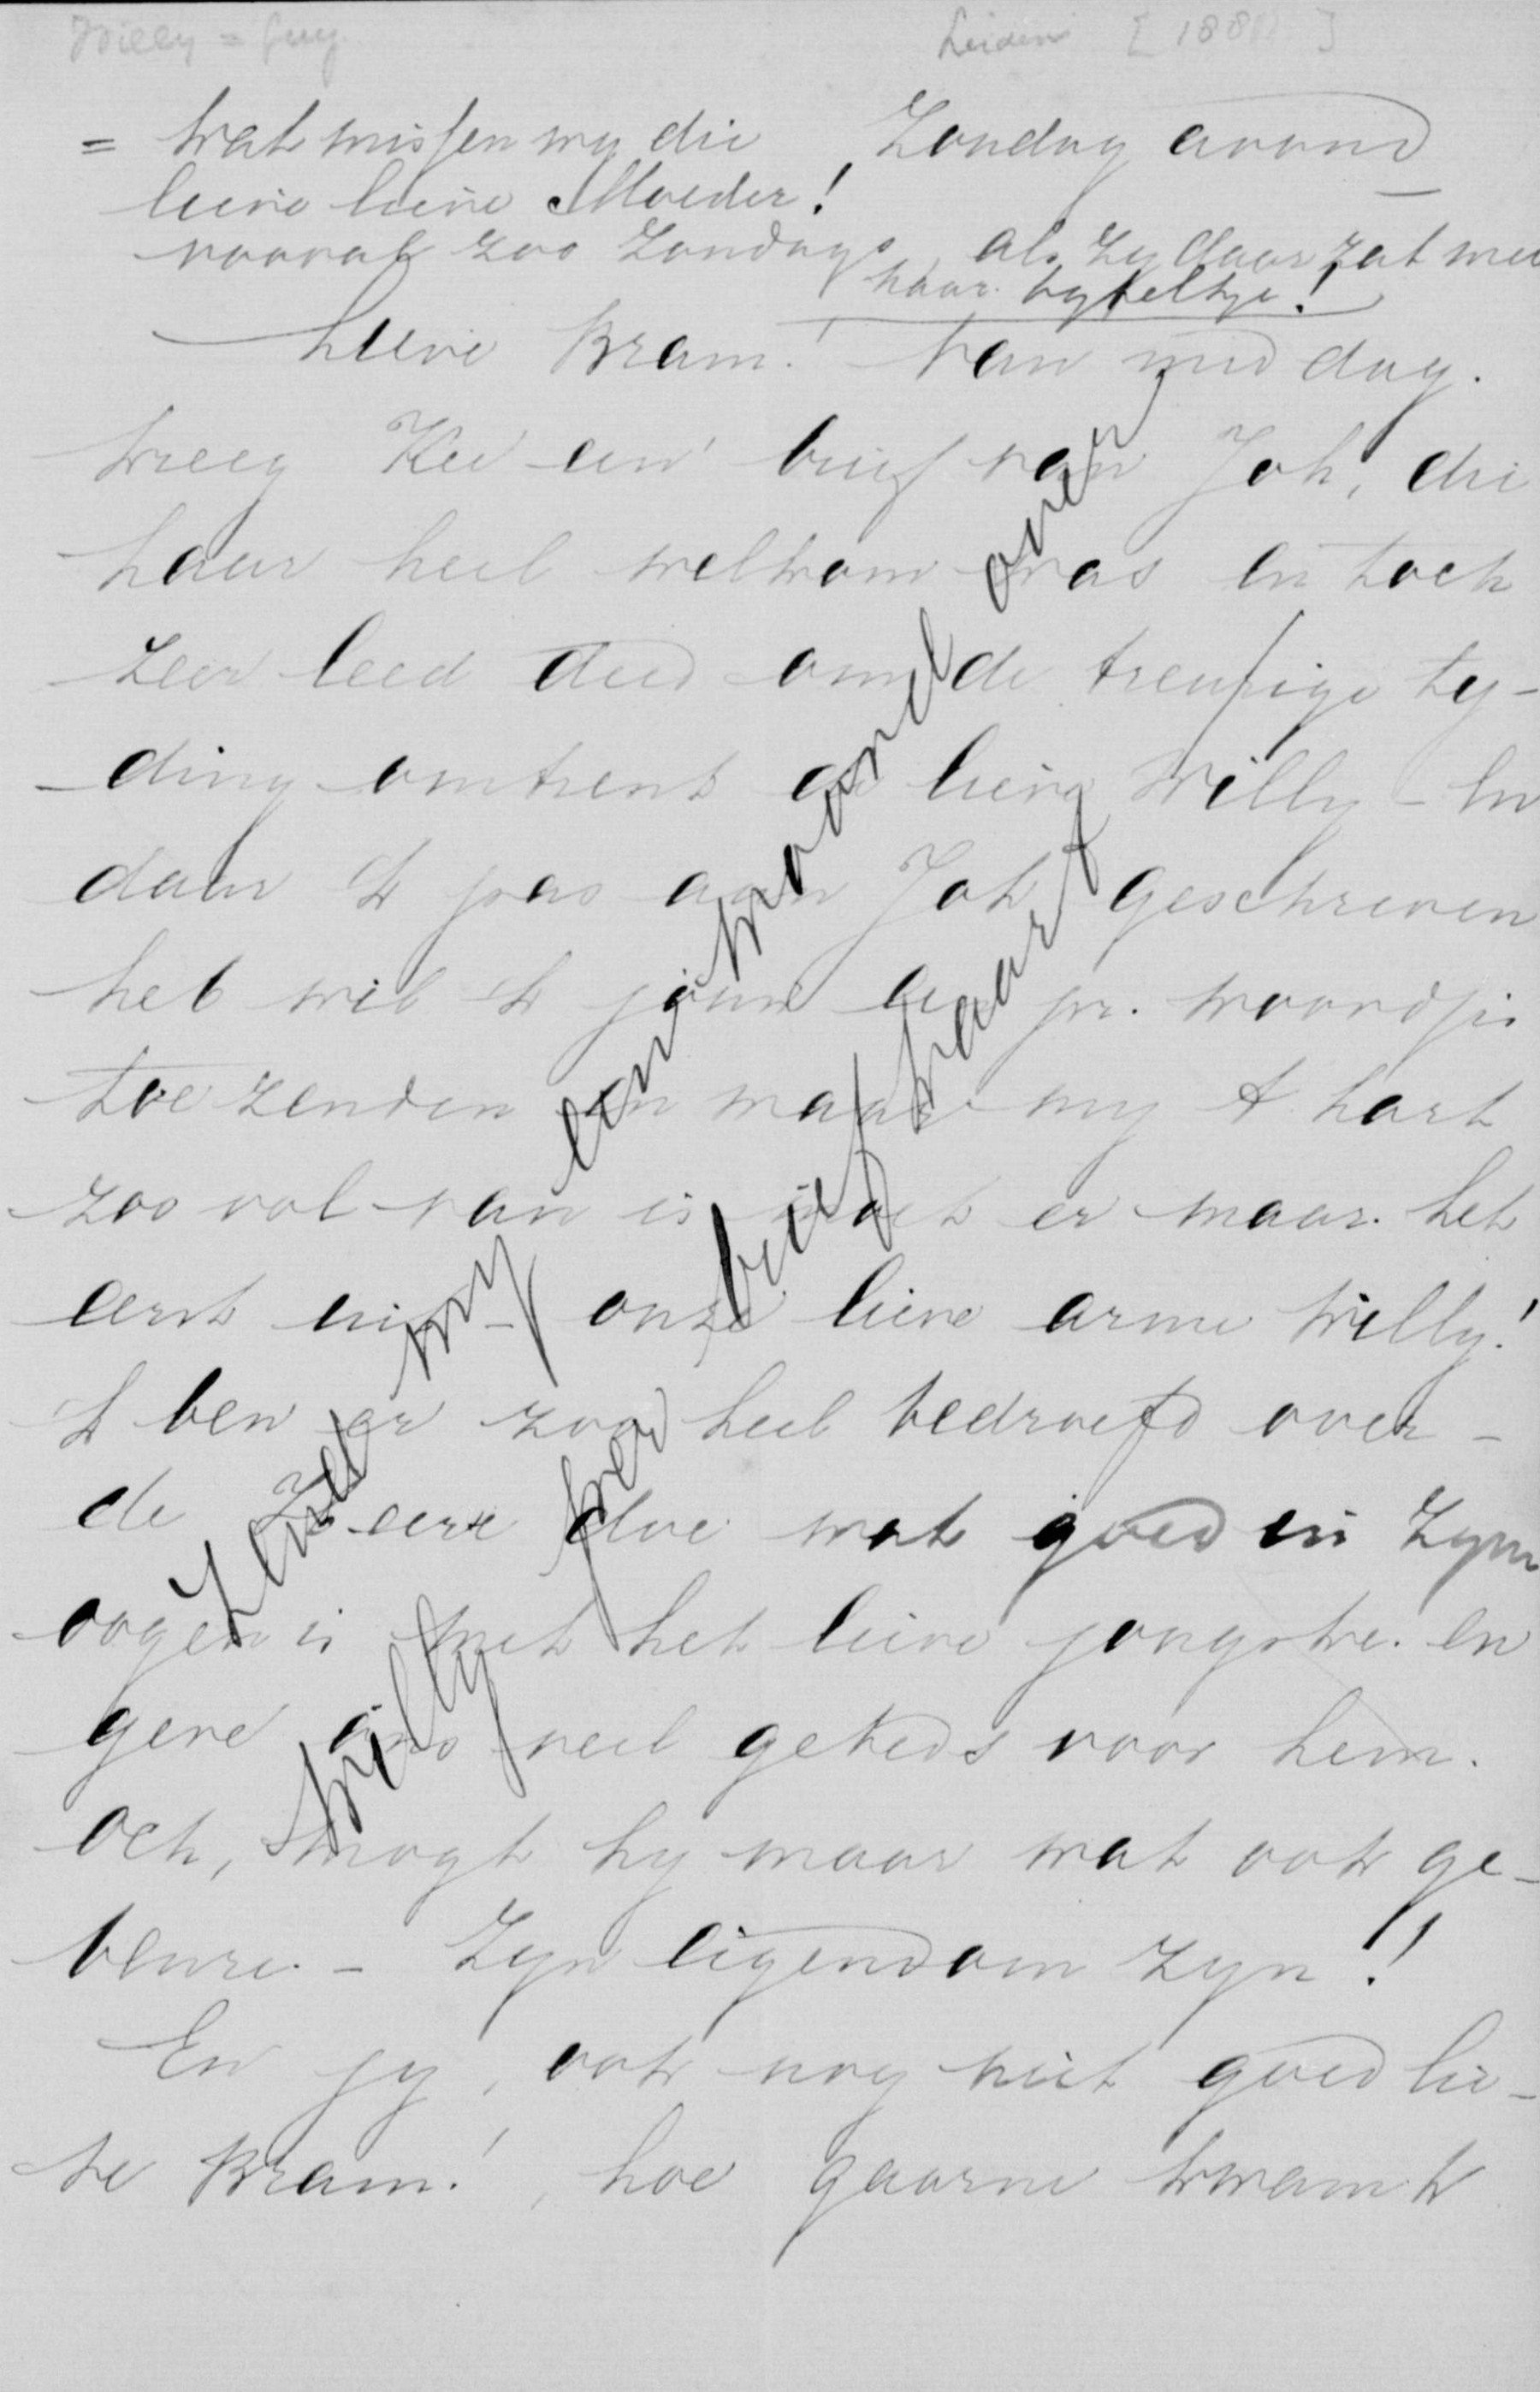 Willy = Guy
Leiden [188 ]
Zondag avond
= Wat missen wy die
lieve lieve Moeder!
vooral zoo Zondags, als zy daar zat met
haar bybeltje!
Lieve Bram! Van middag.
kreeg Kee een brief van Joh, die
haar heel welkom was en toch
zeer leed deed om de treurige ty-
ding omtrent de lieve Willy - En
daar ik pas aan Joh geschreven
heb wil ik jouw een pr. woordjes
toezenden en waar my 't hart
zoo vol van is moet er maar het
eerst uit - onze lieve arme Willy!
Ik ben er zoo heel bedroefd over -
de Heere doe wat goed in Zyne
oogen is met het lieve jongske. en
geve ons veel gebeds voor hem.
och, mogt hy maar wat ook ge-
beure. - Zyn eigendom zyn!
En jy, ook nog niet goed lie-
ve Bram!, hoe gaarne kwam ik
Zend my een avond over
Willy per briefkaart